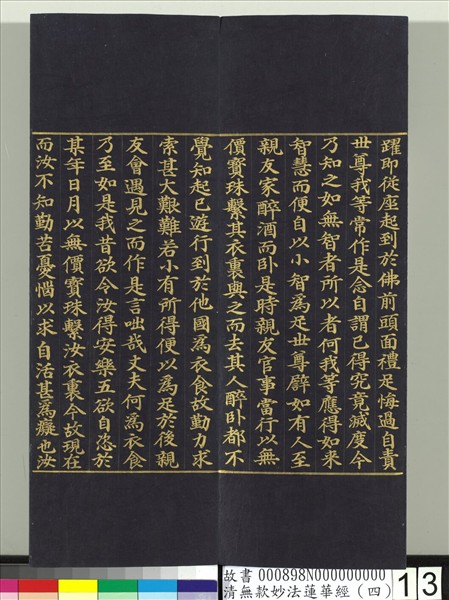 躍即從座起到於佛前頭面禮足悔過自責
世尊我等常作是念自謂已得究竟滅度今
乃知之如無智者所以者何我等應得如來
智慧而便自以小智為足世尊譬如有人至
親友家醉酒而臥是時親友官事當行以無
價寶珠繫其衣裏與之而去其人醉臥都不
覺知起已遊行到於他國為衣食故勤力求
索甚大艱難若小有所得便以為足於後親
友會遇見之而作是言咄哉丈夫何為衣食
乃至如是我昔欲令汝得安樂五欲自恣於
某年日月以無價寶珠繫汝衣裏今故現在
而汝不知勤苦憂惱以求自活甚為癡也汝
故書 000898N000000000
清無款妙法蓮華經（四）
13